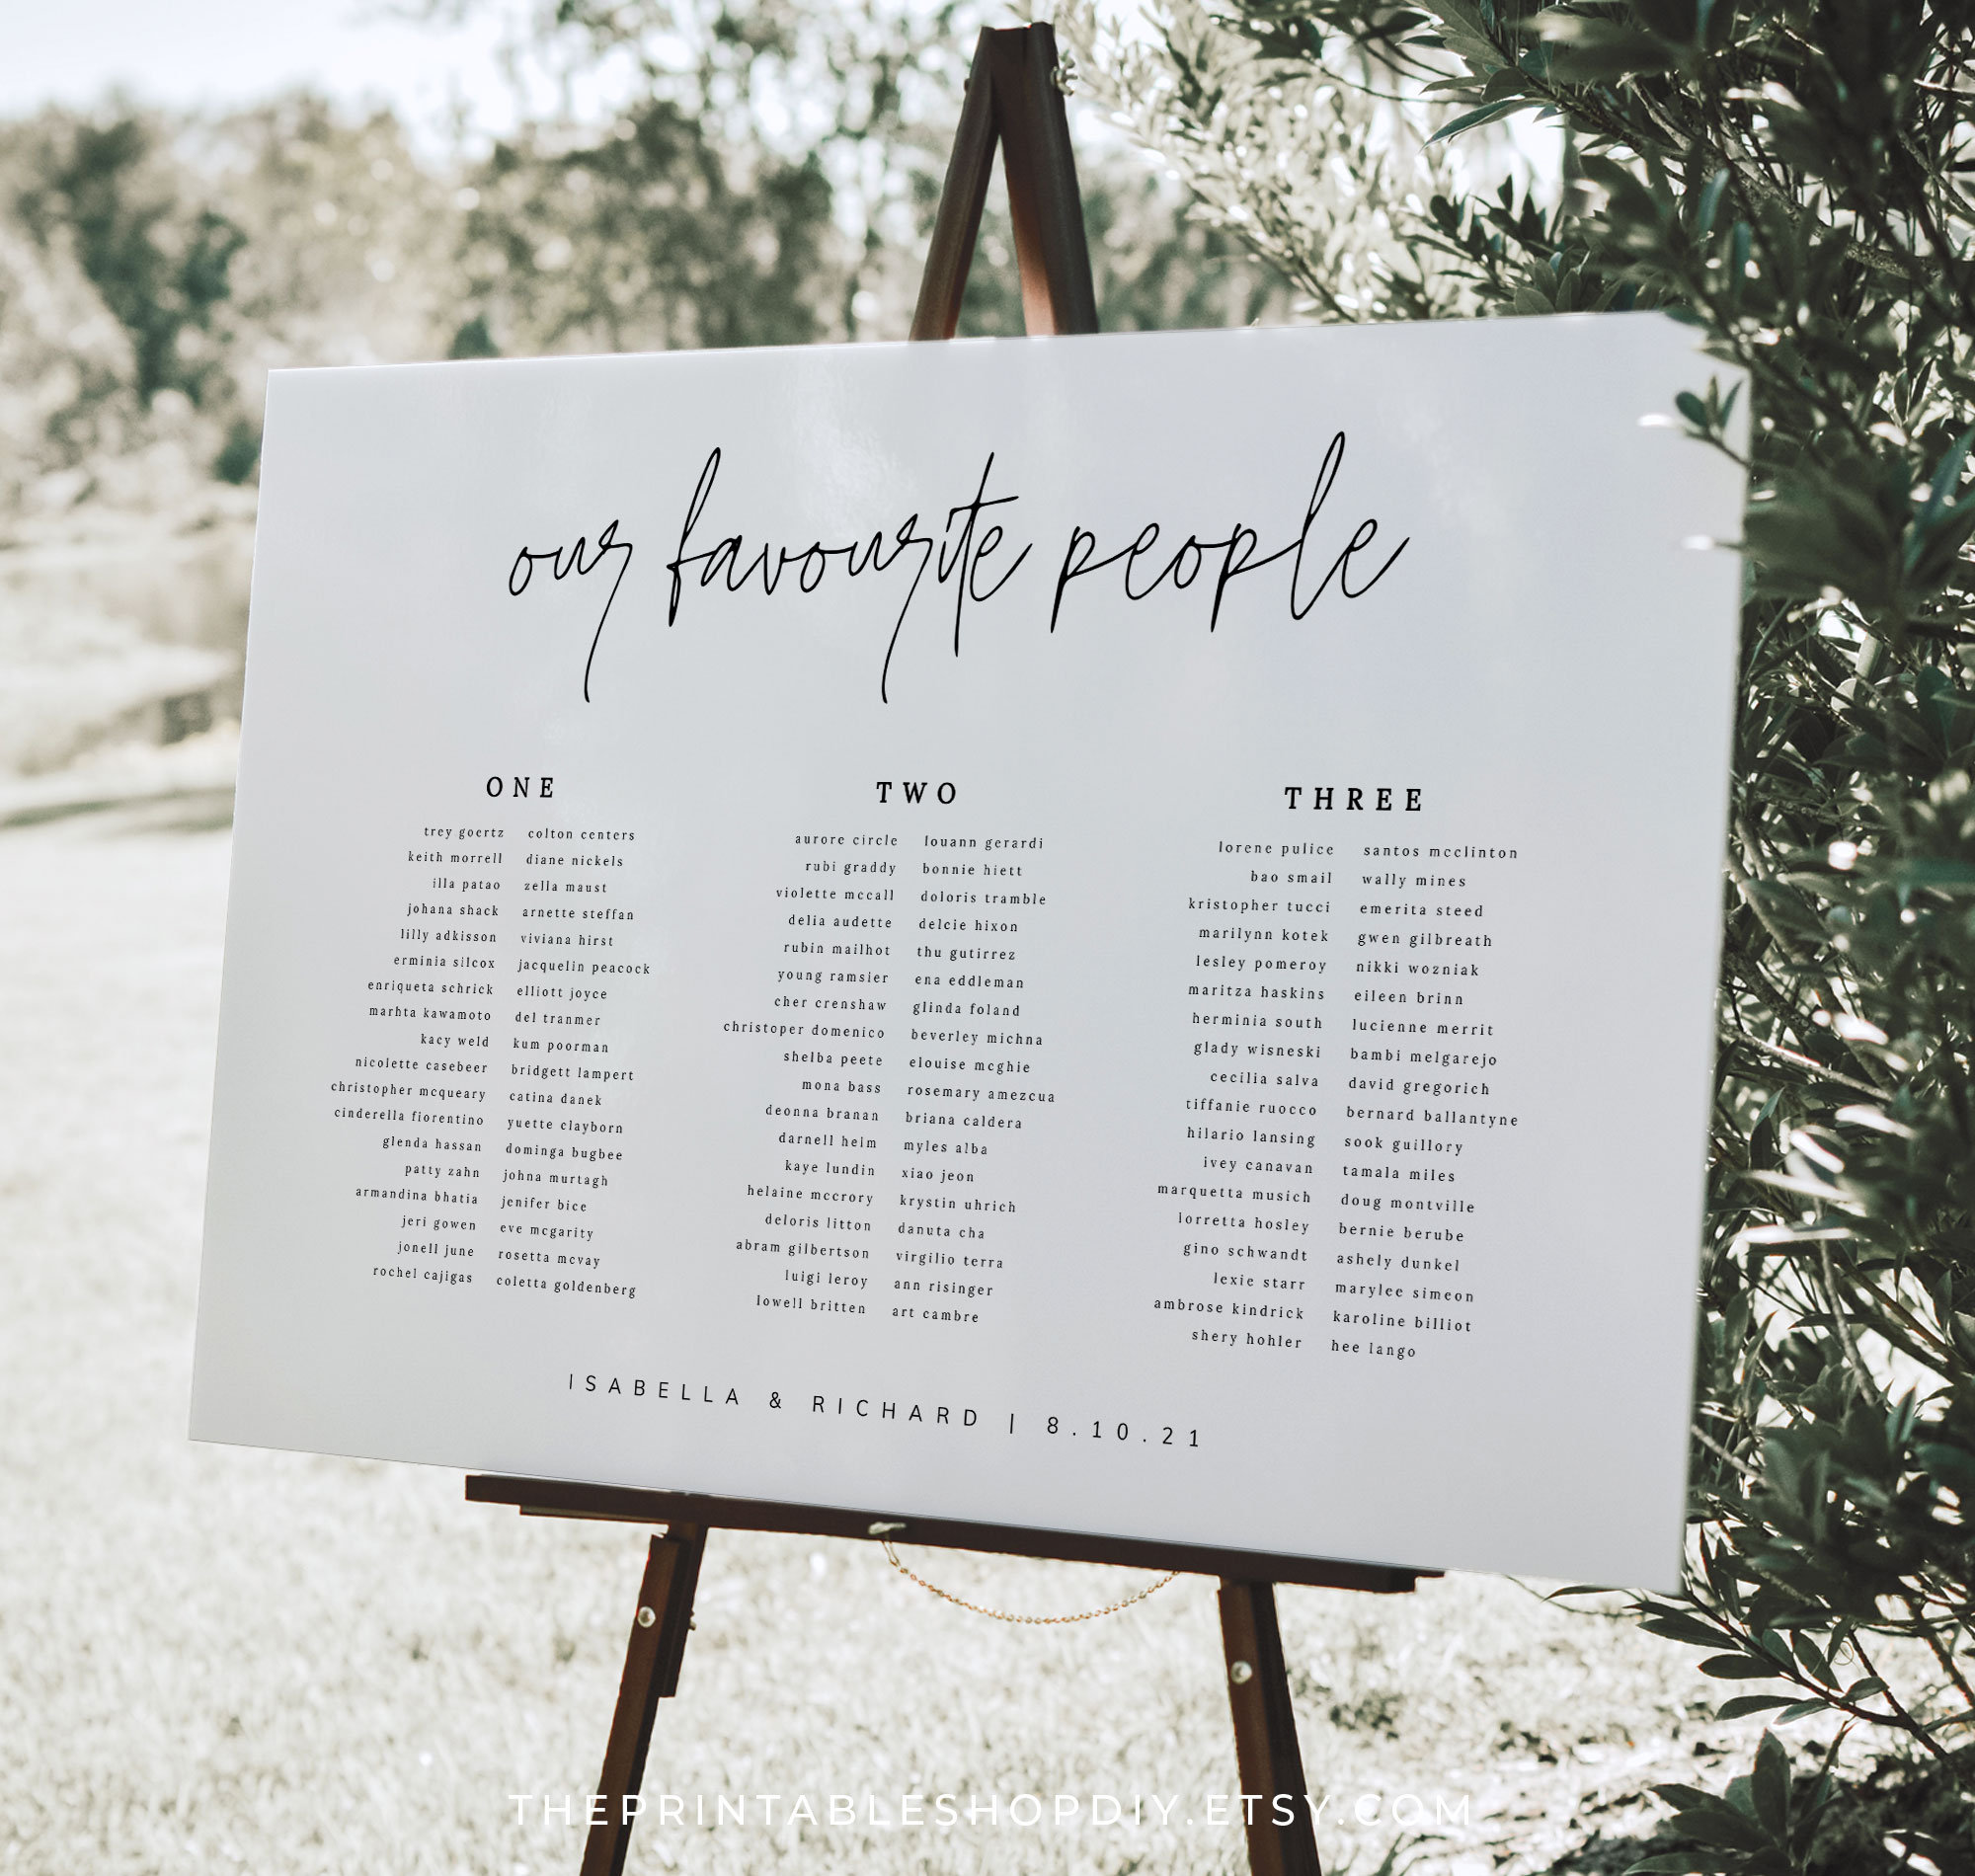 our favourite people
ONE
trey goertz colton centers
keith morrell diane nickels
illa patao zella maust
johana shack arnette steffan
lilly adkisson viviana hirst
erminia silcox jacquelin peacock
enriqueta schrick elliott joyce
marhta kawamoto del tranmer
kacy weld kum poorman
nicolette casebeer bridgett lampert
christopher mcqueary catina danek
cinderella fiorentino yuette clayborn
glenda hassan dominga bugbee
patty zahn johna murtagh
armandina bhatia jenifer bice
jeri gowen eve mcgarity
jonell june rosetta mcvay
rochel cajigas coletta goldenberg
TWO
aurore circle louann gerardi
rubi graddy bonnie hiett
violette mccall doloris tramble
delia audette delcie hixon
rubin mailhot thu gutirrez
young ramsier ena eddleman
cher crenshaw glinda foland
christoper domenico beverley michna
shelba peete elouise mcghie
mona bass rosemary amezcua
deonna branan briana caldera
darnell helm myles alba
kaye lundin xiao jeon
helaine mccrory krystin uhrich
deloris litton danuta cha
abram gilbertson virgilio terra
luigi leroy ann risinger
lowell britten art cambre
THREE
lorene pulice santos mcclinton
bao smail wally mines
kristopher tucci emerita steed
marilynn kotek gwen gilbreath
lesley pomeroy nikki wozniak
maritza haskins eileen brinn
herminia south lucienne merrit
glady wisneski bambi melgarejo
cecilia salva david gregorich
tiffanie ruocco bernard ballantyne
hilario lansing sook guillory
ivey canavan tamala miles
marquetta musich doug montville
lorretta hosley bernie berube
gino schwandt ashely dunkel
lexie starr marylee simeon
ambrose kindrick karoline billiot
shery hohler hee lango
ISABELLA & RICHARD | 8.10.21
THEPRINTABLESHOPDIY.ETSY.COM